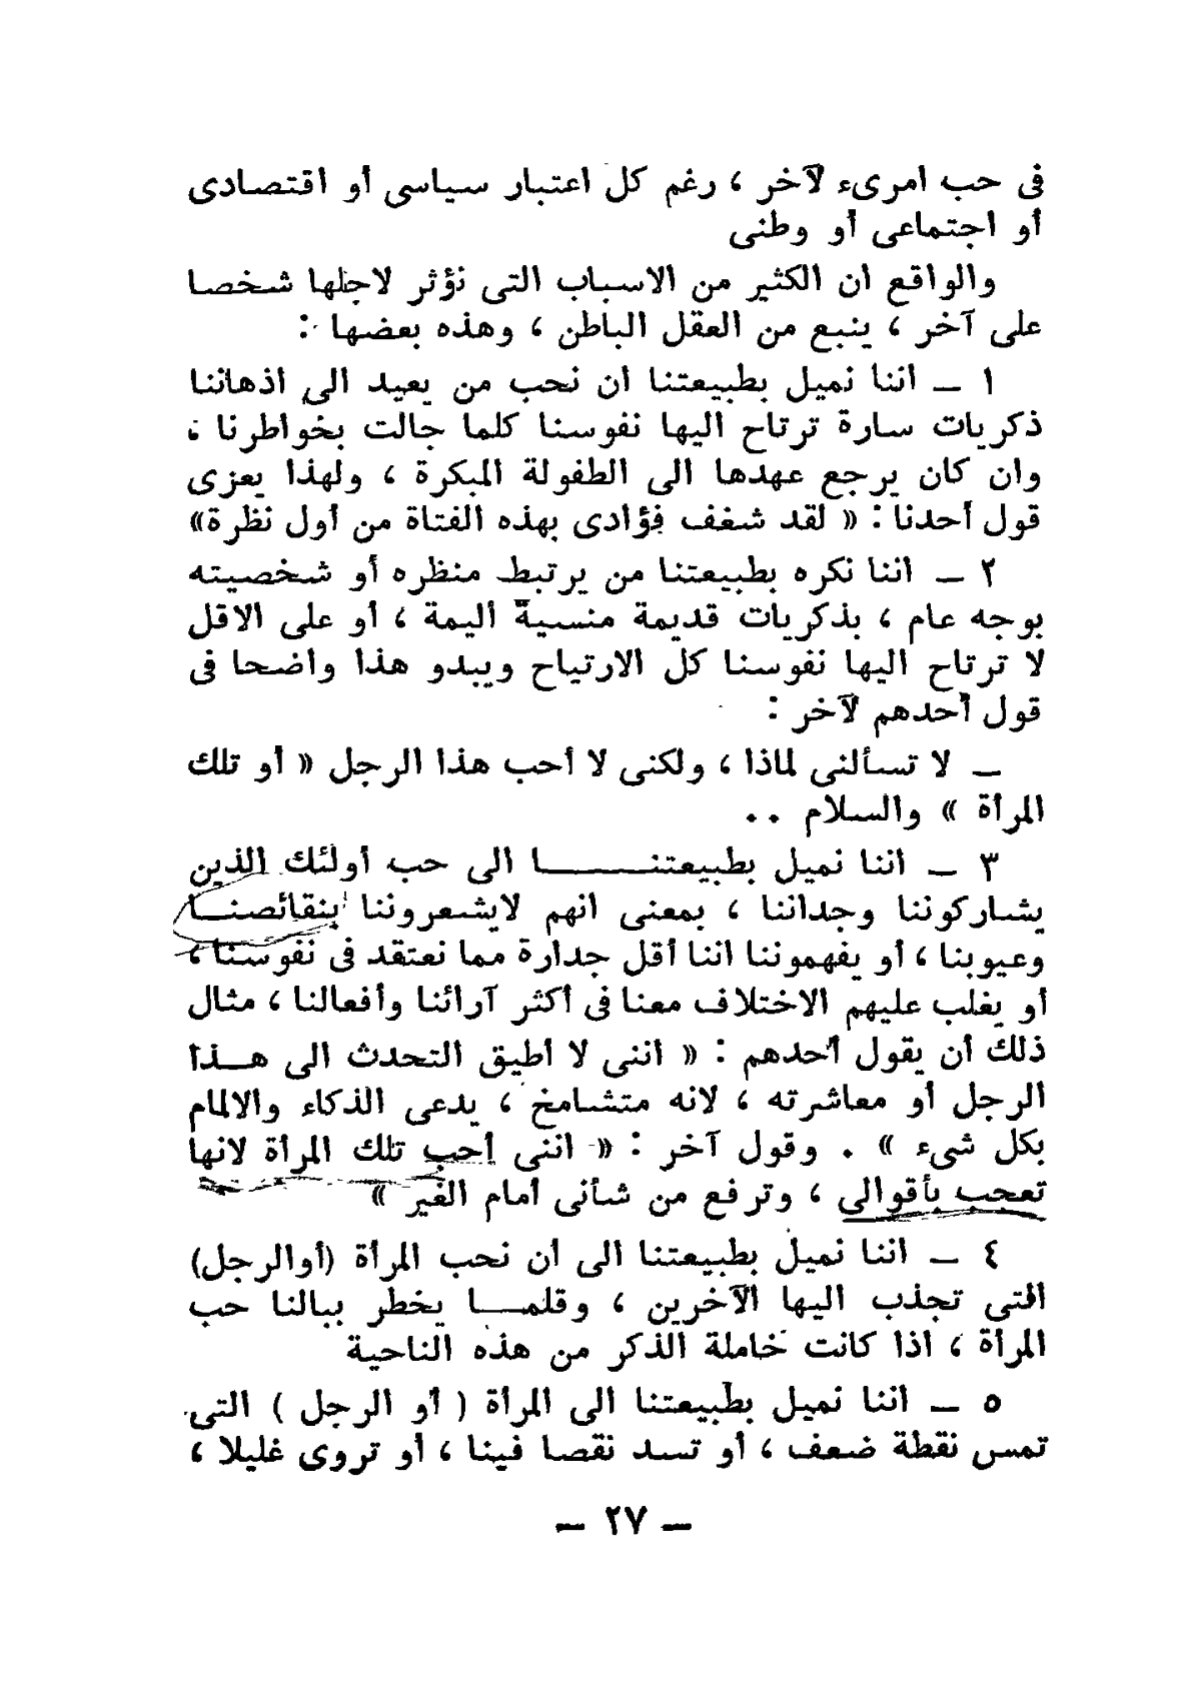 فى حب امرىء لآخر ، رغم كل اعتبار سياسى أو اقتصادى
أو اجتماعى أو وطنى
والواقع ان الكثير من الاسباب التى نؤثر لاجلها شخصا
على آخر ، ينبع من العقل الباطن ، وهذه بعضها :
١ ــ اننا نميل بطبيعتنا ان نحب من يعيد الى اذهاننا
ذكريات سارة ترتاح اليها نفوسنا كلما جالت بخواطرنا ،
وان كان يرجع عهدها الى الطفولة المبكرة ، ولهذا يعزى
قول أحدنا : « لقد شغف فؤادى بهذه الفتاة من أول نظرة»
٢ ــ اننا نكره بطبيعتنا من يرتبط منظره أو شخصيته
بوجه عام ، بذكريات قديمة منسية أليمة ، أو على الاقل
لا ترتاح اليها نفوسنا كل الارتياح ويبدو هذا واضحا فى
قول أحدهم لآخر :
ــ لا تسألنى لماذا ، ولكنى لا أحب هذا الرجل « أو تلك
المرأة » والسلام ..
٣ ــ اننا نميل بطبيعتنـــــــا الى حب أولئك الذين
يشاركوننا وجداننا ، بمعنى انهم لايشعروننا بنقائصنـــا
وعيوبنا ، أو يفهموننا اننا أقل جدارة مما نعتقد فى نفوسنا ،
أو يغلب عليهم الاختلاف معنا فى أكثر آرائنا وأفعالنا ، مثال
ذلك أن يقول أحدهم : « اننى لا أطيق التحدث الى هــذا
الرجل أو معاشرته ، لانه متشامخ ، يدعى الذكاء والالمام
بكل شىء » . وقول آخر : « اننى أحب تلك المرأة لانها
تعجب بأقوالى ، وترفع من شأنى أمام الغير »
٤ ــ اننا نميل بطبيعتنا الى أن نحب المرأة (أوالرجل)
التى تجذب اليها الآخرين ، وقلمـــا يخطر ببالنا حب
المرأة ، اذا كانت خاملة الذكر من هذه الناحية
٥ ــ اننا نميل بطبيعتنا الى المرأة ( أو الرجل ) التى
تمس نقطة ضعف ، أو تسد نقصا فينا ، أو تروى غليلا ،
ــ ٢٧ ــ